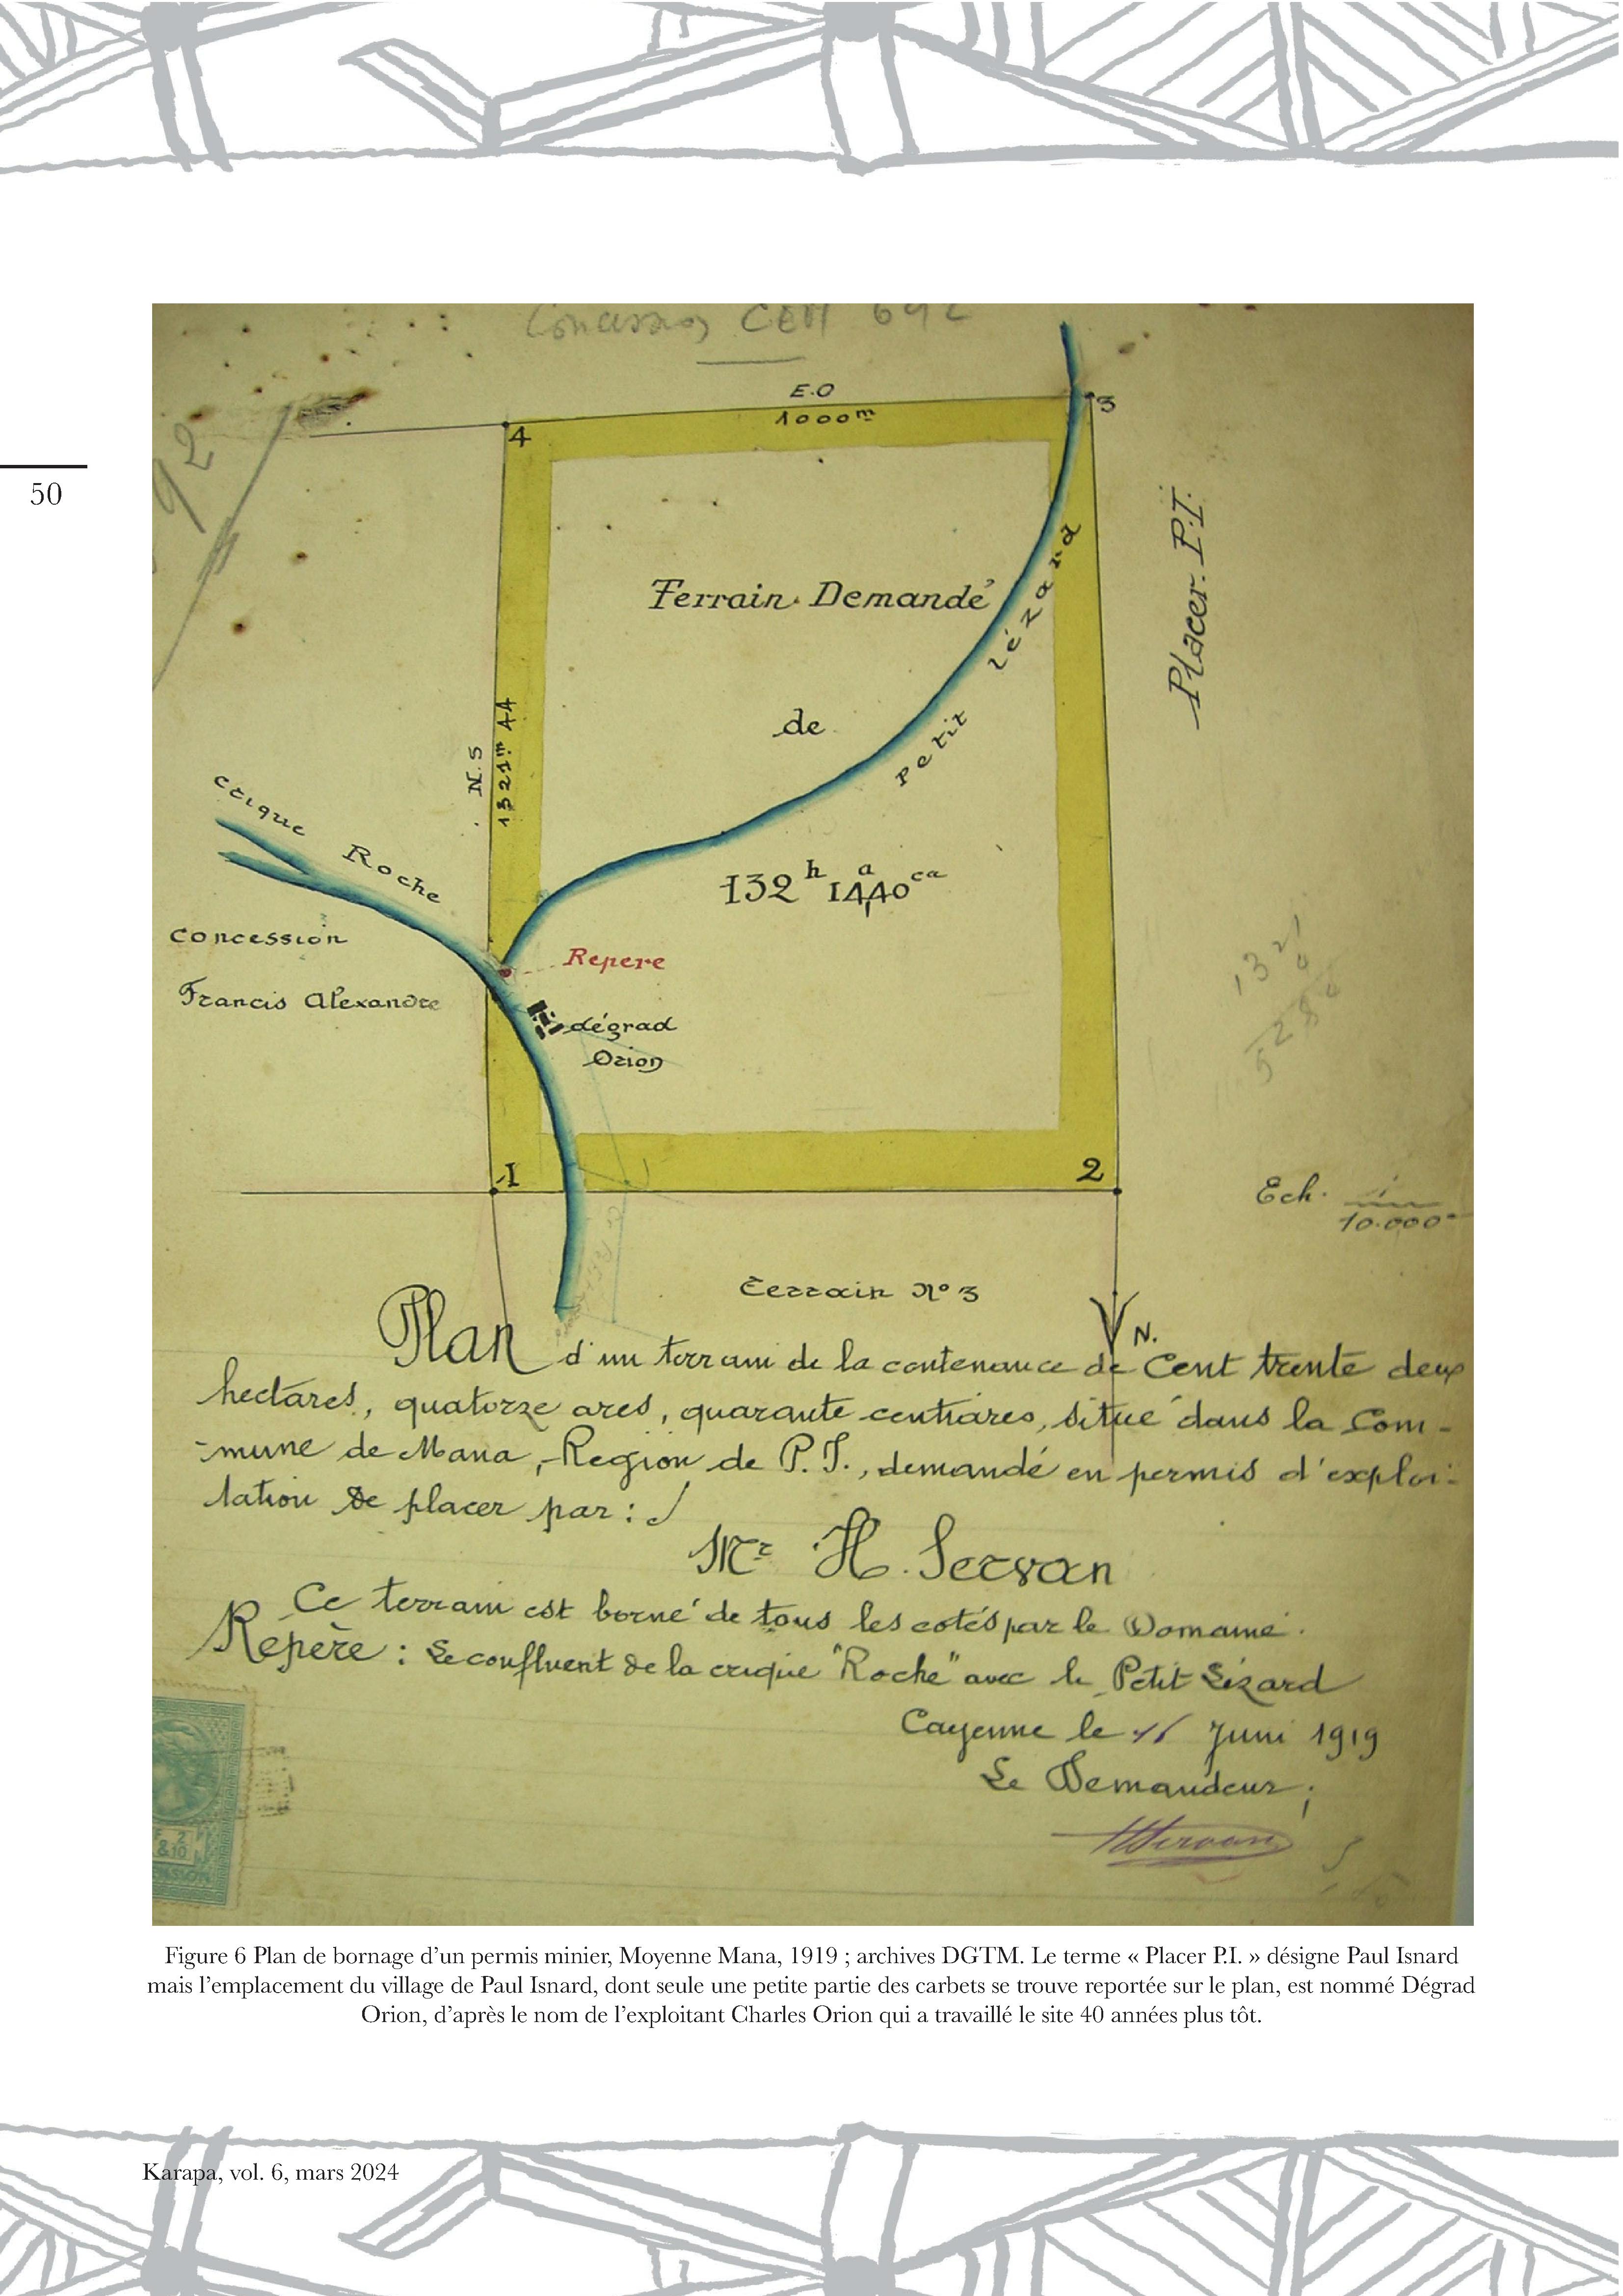 50
Concession CEM 692
92
E.O
1000m
4
3
Placer. P.I.
Terrain Demandé
de
petit lézard
N.S
1321m 44
crique Roche
132h 14a40ca
Concession
Francis Alexandre
Repere
dégrad
Orion
1321
528
1
2
Ech. 1/10.000
Terrain No 3
N.
Plan d'un terrain de la contenance de Cent trente deux
hectares, quatorze ares, quarante centiares, situé dans la Com-
-mune de Mana, Region de P.I., demandé en permis d'exploi-
tation de placer par :
Mr H. Servan
Ce terrain est borné de tous les cotés par le Domaine.
Repère : Le confluent de la crique "Roche" avec le Petit Lézard
Cayenne le 16 Juin 1919
Le Demandeur ;
HServan
2
&10
Figure 6 Plan de bornage d'un permis minier, Moyenne Mana, 1919 ; archives DGTM. Le terme « Placer P.I. » désigne Paul Isnard
mais l'emplacement du village de Paul Isnard, dont seule une petite partie des carbets se trouve reportée sur le plan, est nommé Dégrad
Orion, d'après le nom de l'exploitant Charles Orion qui a travaillé le site 40 années plus tôt.
Karapa, vol. 6, mars 2024